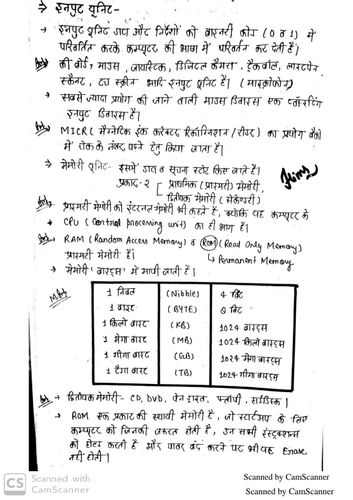 → इनपुट यूनिट-
→ इनपुट यूनिट डाटा और निर्देशों को बाइनरी कोड (0 व 1) में
परिवर्तित करके कम्प्यूटर की भाषा में परिवर्तन कर देती है।
→ की बोर्ड, माउस, जॉयस्टिक, डिजिटल कैमरा, ट्रैकबॉल, लाइटपेन
स्कैनर, टच स्क्रीन आदि इनपुट यूनिट हैं। (माइक्रोफोन)
→ सबसे ज्यादा प्रयोग की जाने वाली माउस डिवाइस एक पॉइन्टिंग
इनपुट डिवाइस है।
→ MICR (मैग्नेटिक इंक करेक्टर रिकॉग्निशन/रीडर) का प्रयोग बैंको
में चेक के नंबर पढ़ने हेतु किया जाता है।
→ मेमोरी यूनिट- इसमें डाटा व सूचना स्टोर किए जाते हैं।
प्रकार-२ प्राथमिक (प्राइमरी) मेमोरी,
द्वितीयक मेमोरी (सेकेण्डरी)
→ प्राइमरी मेमोरी को इंटरनल मेमोरी भी कहते हैं, क्योंकि यह कम्प्यूटर के
→ CPU (Central Processing unit) का ही भाग है।
→ RAM (Random Access Memory) व ROM (Read Only Memory)
प्राइमरी मेमोरी है। ↳ Permanent Memory
→ मेमोरी 'बाइट्स' में मापी जाती है।
1 निबल (Nibble) 4 बिट
1 बाइट (BYTE) 8 बिट
1 किलो बाइट (KB) 1024 बाइट्स
1 मेगा बाइट (MB) 1024 किलो बाइट्स
1 गीगा बाइट (GB) 1024 मेगा बाइट्स
1 टैरा बाइट (TB) 1024 गीगा बाइट्स
→ द्वितीयक मेमोरी- CD, DVD, पेन ड्राइव, फ्लॉपी, हार्डडिस्क।
→ ROM एक प्रकार की स्थायी मेमोरी है, जो स्टार्टअप के लिए
कम्प्यूटर को जिनकी जरूरत होती है, उन सभी इंस्ट्रक्शन्स
को होल्ड करती है और पावर बंद करने पर भी यह Erase
नहीं होती।
CS Scanned with
CamScanner
Scanned by CamScanner
Scanned by CamScanner